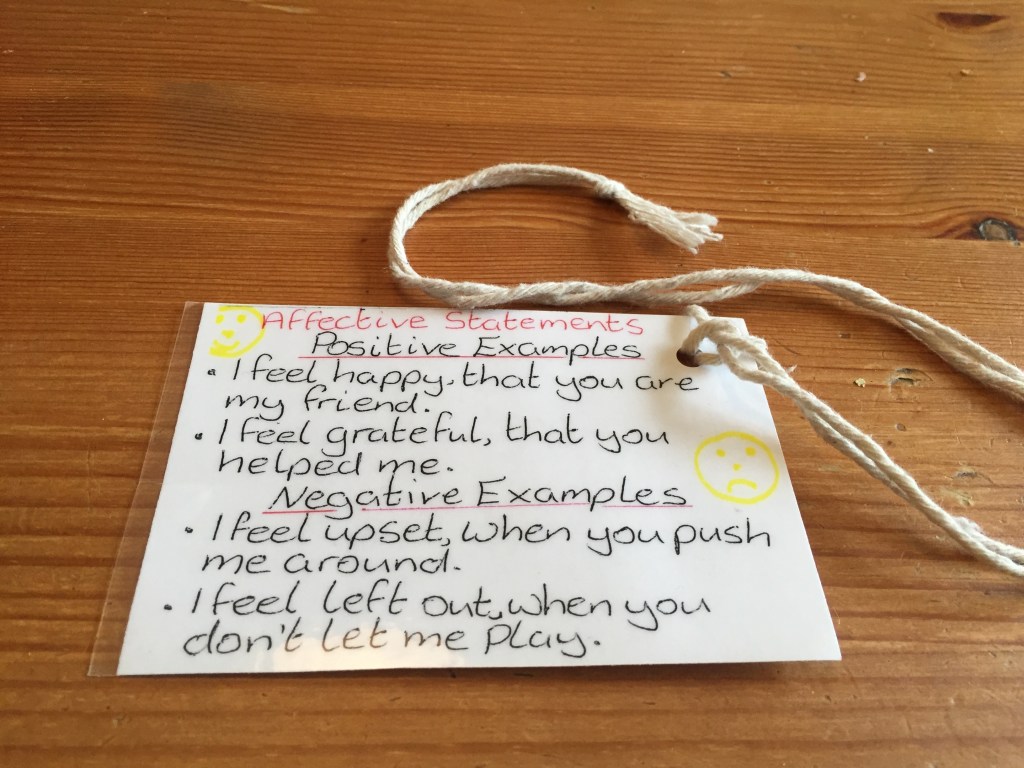 Affective Statements
Positive Examples
• I feel happy, that you are
my friend.
• I feel grateful, that you
helped me.
Negative Examples
• I feel upset, when you push
me around.
• I feel left out, when you
don't let me play.